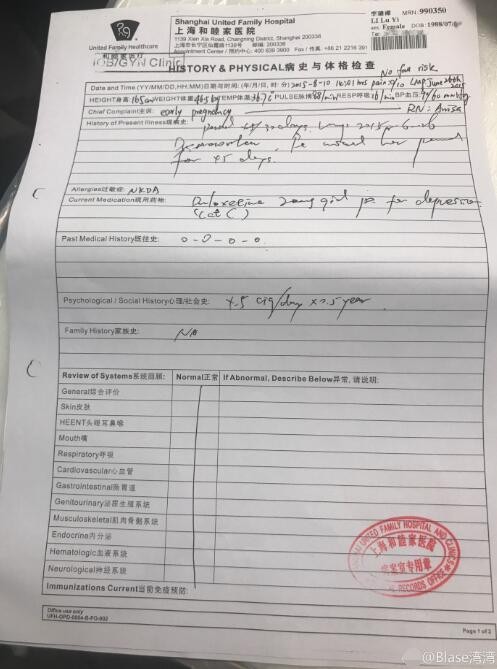 United Family Healthcare
和睦家医疗
OB/GYN Clinic
Shanghai United Family Hospital
上海和睦家医院
1139 Xian Xia Road, Changning District, Shanghai 200336
上海市长宁区仙霞路1139号 邮编: 200336
Appointment Center / 预约中心: 400 639 3900 Fax / 传真: +86 21 2216 391
MRN: 990350
LI Lu Yi
Sex: Female DOB: 1988/07/
HISTORY & PHYSICAL 病史与体格检查
No fall risk
Date and Time (YY/MM/DD,HH:MM)日期与时间: (年/月/日, 时: 分) 2015-8-10 pain 0/10 LMP June 26th 2015
HEIGHT身高: 165cm WEIGHT体重: 46.5kg TEMP体温: 36.7℃ PULSE脉搏: 88/min RESP呼吸: /min BP血压: /60 mmHg
Chief Complaint主诉: early pregnancy RN: Anisa
History of Present Illness现病史:
for 45 days.
Allergies过敏症: NKDA
Current Medication现用药物: 20mg for depression
(Cat C)
Past Medical History既往史: 0-0-0-0
Psychological / Social History心理/社会史: 4-5 cig/day x 2.5 year
Family History家族史:
Review of Systems系统回顾: Normal正常 If Abnormal, Describe Below异常, 请说明:
General综合评价
Skin皮肤
HEENT头眼耳鼻喉
Mouth嘴
Respiratory呼吸
Cardiovascular心血管
Gastrointestinal肠胃道
Genitourinary泌尿生殖系统
Musculoskeletal肌肉骨骼系统
Endocrine内分泌
Hematologic血液系统
Neurological神经系统
Immunizations Current当前免疫预防:
UNITED FAMILY HOSPITAL AND CLINICS
上海和睦家医院
病案室专用章
RECORDS OFFICE
Office use only
UFH-OPD-0004-B-FO-002
Page 1 of 2
@Blase湾湾